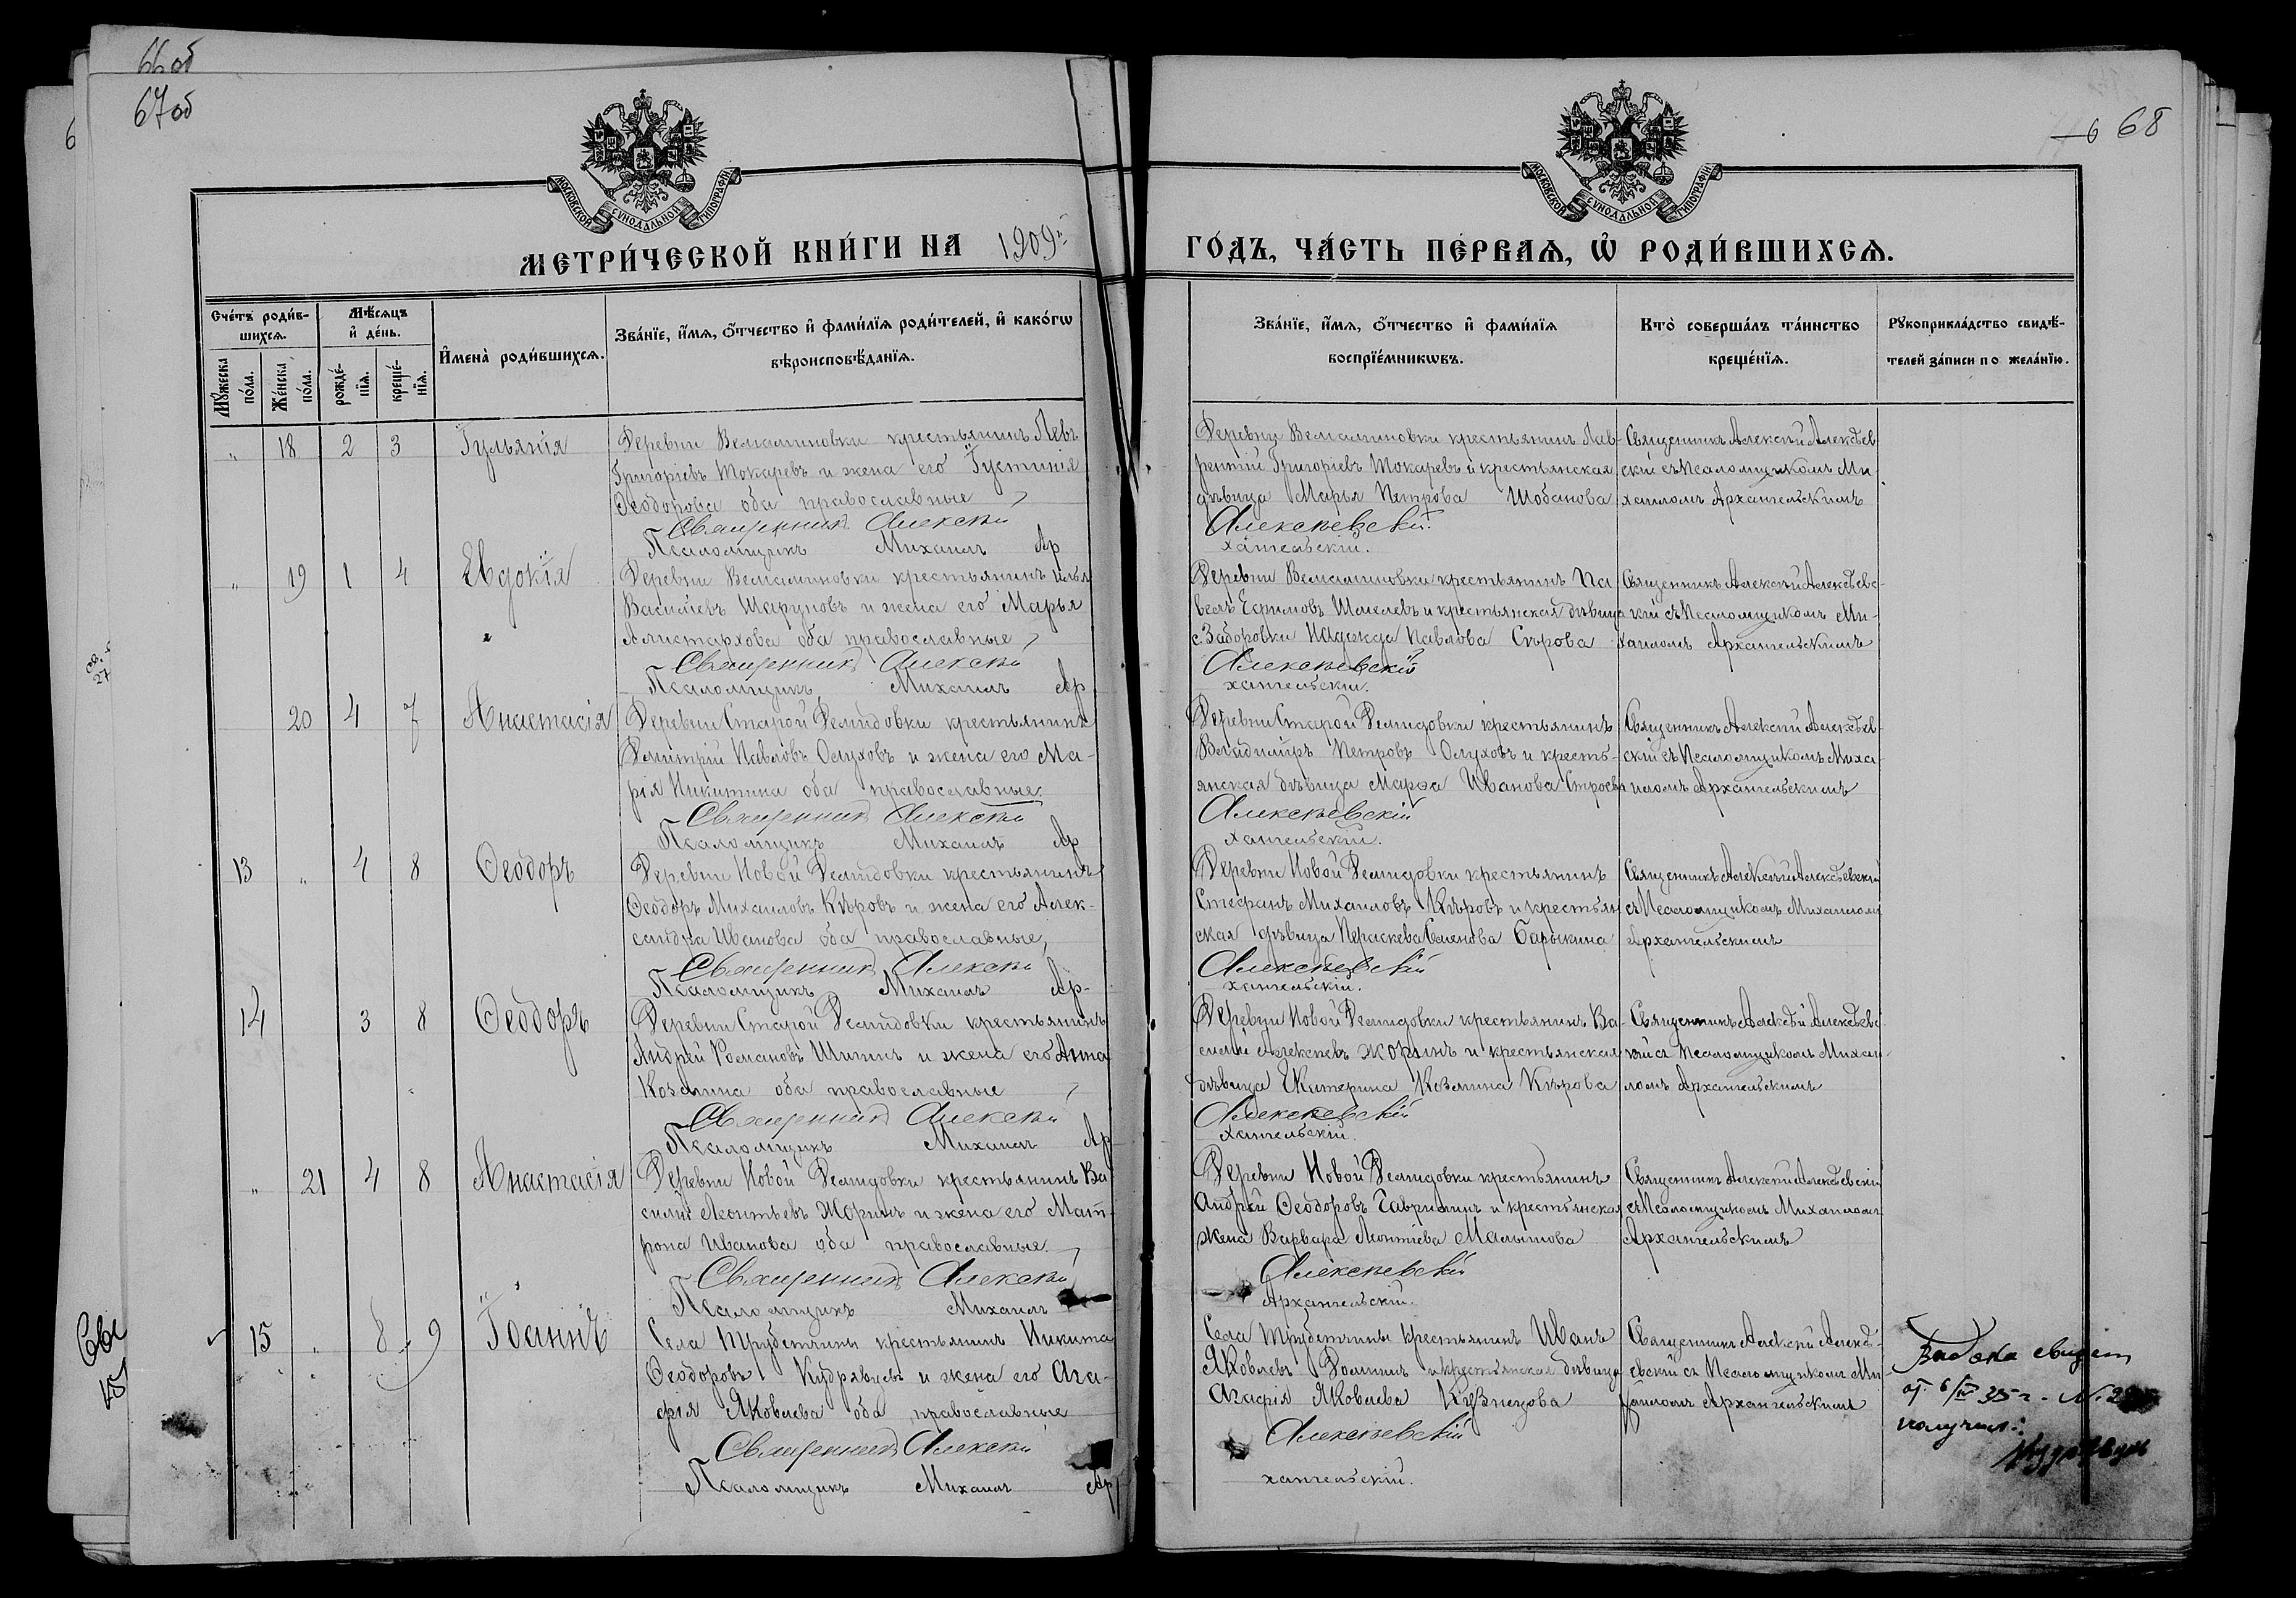 66об
67об
68
МОСКОВСКОЙ СѴНОДАЛЬНОЙ ТИПОГРАФІИ
МОСКОВСКОЙ СѴНОДАЛЬНОЙ ТИПОГРАФІИ
МЕТРИ́ЧЕСКОЙ КНИ́ГИ НА 1909й
ГО́ДЪ, ЧА́СТЬ ПЕ́РВАѦ, Ѡ҆ РОДИ́ВШИХСѦ.
Сче́тъ роди́в-
шихсѧ.
Мѣ́сѧцъ
и҆ де́нь.
Мꙋ́жеска
по́ла.
Же́нска
по́ла.
рожде́-
нїѧ.
креще́-
нїѧ.
И҆мена̀ роди́вшихсѧ.
Зва́нїе, и҆́мѧ, ѻ҆́тчество и҆ фами́лїѧ роди́телей, и҆ како́гѡ
вѣроисповѣ́данїѧ.
Зва́нїе, и҆́мѧ, ѻ҆́тчество и҆ фами́лїѧ
воспрїе́мникѡвъ.
Кто̀ соверша́лъ та́инство
креще́нїѧ.
Рꙋкоприкла́дство свидѣ́-
телей за́писи по жела́нїю.
„ 18 2 3 Іульянія
Деревни Вельяминовки крестьянинъ Левъ
Григоріевъ Токаревъ и жена его Іустинія
Ѳеодорова оба православные
Священникъ Алексѣй
Псаломщикъ Михаилъ Ар
Деревни Вельяминовки крестьянинъ Лав-
рентій Григоріевъ Токаревъ и крестьянская
дѣвица Марья Петрова Шобанова
Алексѣевскій.
хангельскій.
Священникъ Алексѣй Алексѣев-
скій съ Псаломщикомъ Ми-
хаиломъ Архангельскимъ
„ 19 1 4 Евдокія
Деревни Вельяминовки крестьянинъ Илья
Васильевъ Шаруновъ и жена его Марья
Алистархова оба православные
Священникъ Алексѣй
Псаломщикъ Михаилъ Ар
Деревни Вельяминовки крестьянинъ Па-
велъ Ефимовъ Шмелевъ и крестьянская дѣвица
с. Заборовки Надежда Павлова Сѣрова
Алексѣевскій
хангельскій.
Священникъ Алексѣй Алексѣевс-
кій съ Псаломщикомъ Ми-
хаиломъ Архангельскимъ
20 4 7 Анастасія
Деревни Старой Демидовки крестьянинъ
Димитрій Павловъ Олуховъ и жена его Ма-
рія Никитина оба православные.
Священникъ Алексѣй
Псаломщикъ Михаилъ Ар
Деревни Старой Демидовки крестьянинъ
Владиміръ Петровъ Олуховъ и кресть-
янская дѣвица Марѳа Иванова Строева
Алексѣевскій
хангельскій.
Священникъ Алексѣй Алексѣев-
скій съ Псаломщикомъ Миха-
иломъ Архангельскимъ
13 „ 4 8 Ѳеодоръ
Деревни Новой Демидовки крестьянинъ
Ѳеодоръ Михаиловъ Кѣровъ и жена его Алек-
сандра Иванова оба православные,
Священникъ Алексѣй
Псаломщикъ Михаилъ Ар-
Деревни Новой Демидовки крестьянинъ
Стефанъ Михаиловъ Кѣровъ и крестьян
ская дѣвица Пераскева Семенова Барыкина
Алексѣевскій
хангельскій.
Священникъ Алексѣй Алексѣевскій
съ Псаломщикомъ Михаиломъ
Архангельскимъ
14 3 8 Ѳеодоръ
Деревни Старой Демидовки крестьянинъ
Андрей Романовъ Шитинъ и жена его Анна
Козмина оба православные
Священникъ Алексѣй
Псаломщикъ Михаилъ Ар
Деревни Новой Демидовки крестьянинъ Ва-
силій Алексѣевъ Жоринъ и крестьянская
дѣвица Екатерина Козмина Кѣрова
Алексѣевскій
хангельскій.
Священникъ Алексѣй Алексѣевс
кій съ Псаломщикомъ Михаи-
ломъ Архангельскимъ
„ 21 4 8 Анастасія
Деревни Новой Демидовки крестьянинъ Ва
силій Леонтьевъ Жоринъ и жена его Мат-
рона Иванова оба православные.
Священникъ Алексѣй
Псаломщикъ Михаилъ
Деревни Новой Демидовки крестьянинъ
Андрей Ѳеодоровъ Гавришинъ и крестьянская
жена Варвара Леонтіева Малышова
Алексѣевскій
Архангельскій.
Священникъ Алексѣй Алексѣевскій
съ Псаломщикомъ Михаиломъ
Архангельскимъ
15 „ 8 9 Іоаннъ
Села Трубетчины крестьянинъ Никита
Ѳеодоровъ Кудрявцевъ и жена его Ага-
фія Яковлева оба православные
Священникъ Алексѣй
Псаломщикъ Михаилъ Ар
Села Трубетчины крестьянинъ Иванъ
Яковлевъ Фоминъ и крестьянская дѣвица
Агафія Яковлева Кузнецова
Алексѣевскій
хангельскій.
Священникъ Алексѣй Алексѣ-
евскій съ Псаломщикомъ Ми-
хаиломъ Архангельскимъ
от 6/IV 35 г.
получил: